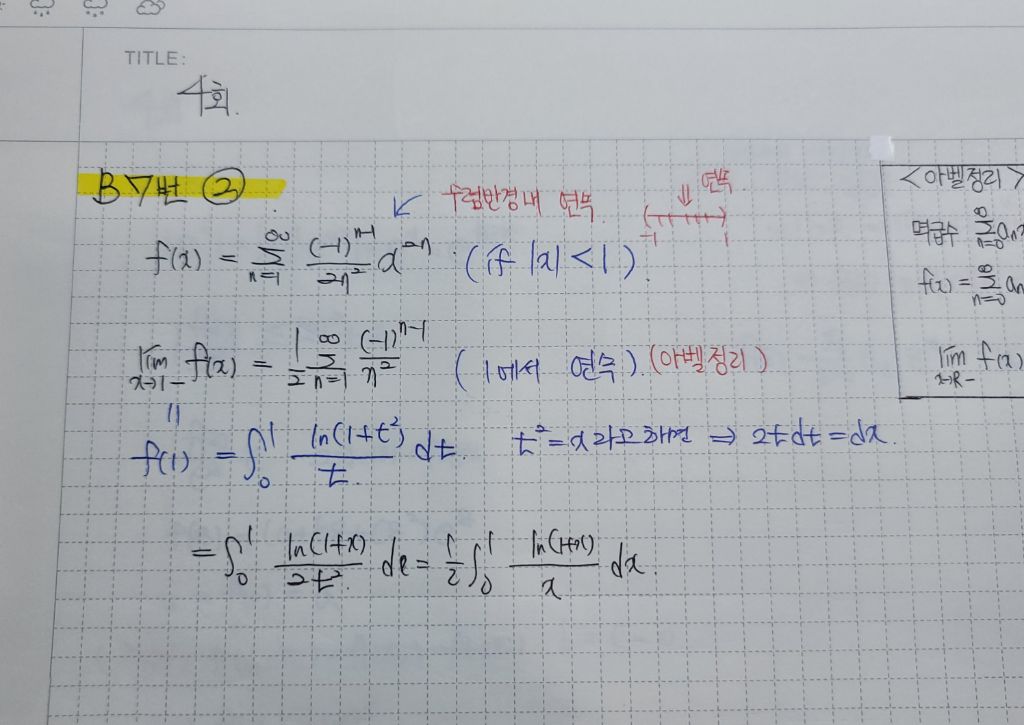 TITLE:
4회.
B7번 ②
수렴반경내 연속.
연속.
-1 1
f(x) = ∞Σn=1 (-1)^(n-1)/2n² x^2n (if |x|<1).
lim x→1- f(x) = 1/2 ∞Σn=1 (-1)^(n-1)/n² (1에서 연속). (아벨정리)
||
f(1) = ∫₀¹ ln(1+t²)/t dt. t²=x라고하면 ⇒ 2tdt=dx.
= ∫₀¹ ln(1+x)/2t² dx = 1/2 ∫₀¹ ln(1+x)/x dx
<아벨정리>
멱급수 ∞Σn=0 anx
f(x) = ∞Σn=0 an
lim x→R- f(x)